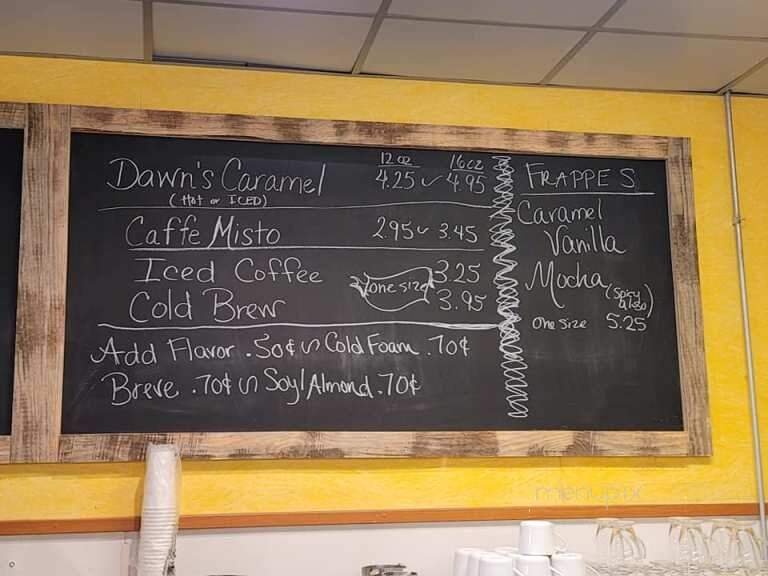 12 oz 16 oz
Dawn's Caramel 4.25 ~ 4.95
(Hot or ICED)
Caffe Misto 2.95 ~ 3.45
Iced Coffee 3.25
one size
Cold Brew 3.95
Add Flavor .50¢ ~ Cold Foam .70¢
Breve .70¢ ~ Soy/Almond .70¢
FRAPPES
Caramel
Vanilla
Mocha
(Spicy Also)
one size 5.25
menupix